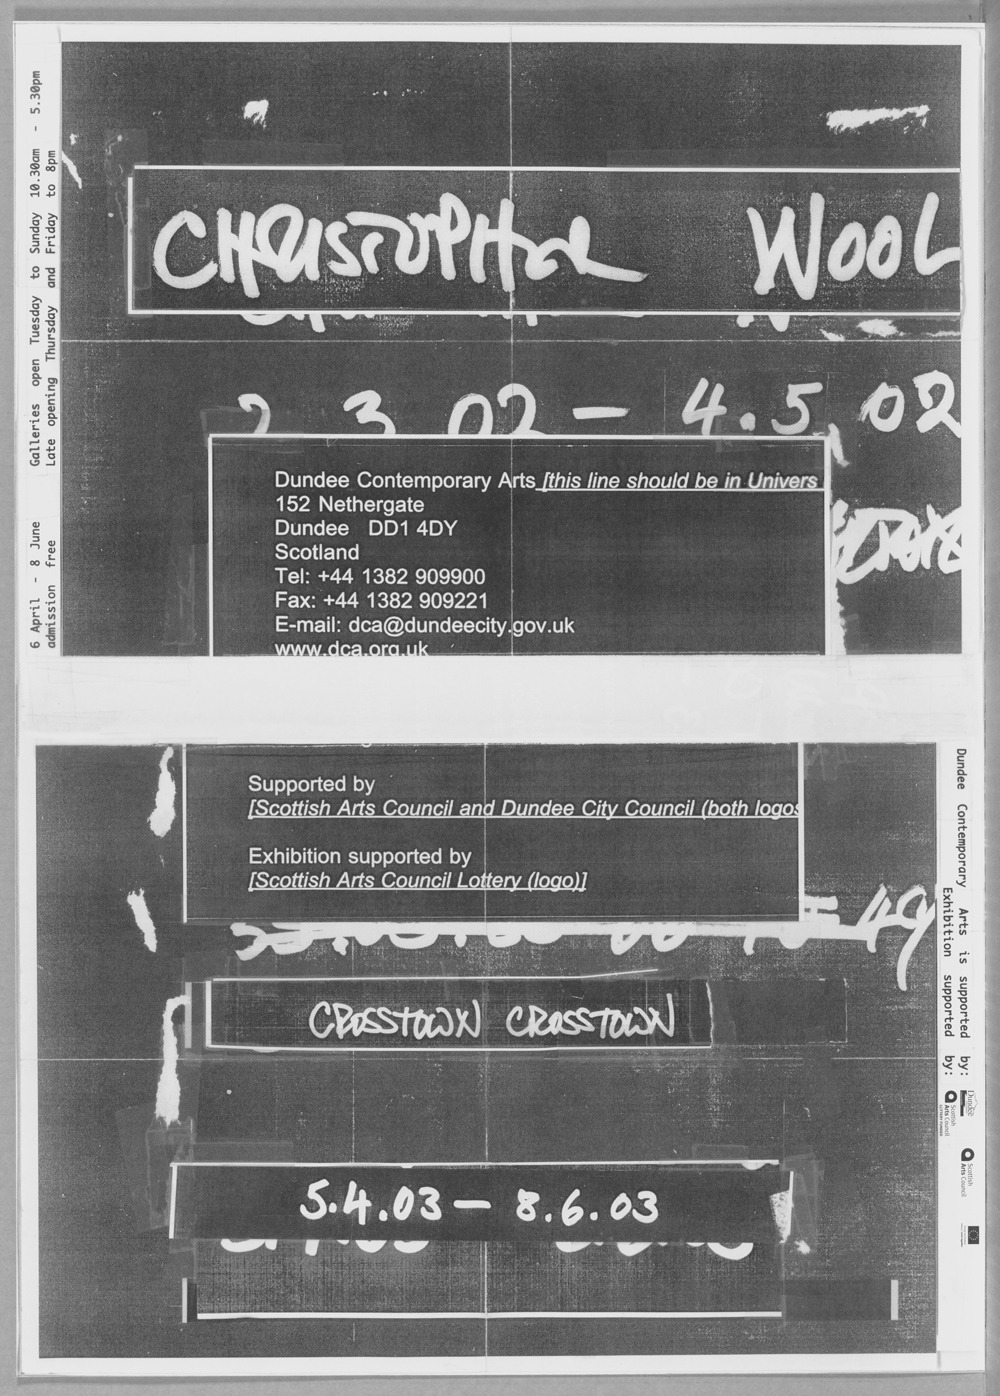 Galleries open Tuesday to Sunday 10.30am - 5.30pm
Late opening Thursday and Friday to 8pm
6 April - 8 June
admission free
CHRISTOPHER WOOL
2 3 02 - 4.5 02
Dundee Contemporary Arts [this line should be in Univers
152 Nethergate
Dundee DD1 4DY
Scotland
Tel: +44 1382 909900
Fax: +44 1382 909221
E-mail: dca@dundeecity.gov.uk
www.dca.org.uk
Supported by
[Scottish Arts Council and Dundee City Council (both logos
Exhibition supported by
[Scottish Arts Council Lottery (logo)]
49
CROSSTOWN CROSSTOWN
5.4.03 - 8.6.03
Dundee Contemporary Arts is supported by:
Exhibition supported by:
Dundee
Scottish
Arts Council
Scottish
Arts Council